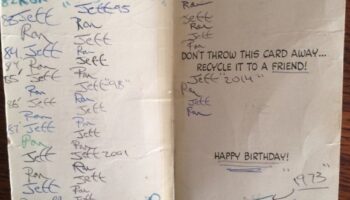 82 RON "Jeff 95
Ron
Jeff Ron
84 Jeff Ron
Ron Jeff
84' Ron Ron
85' Jeff Jeff "98"
Ron Ron
86' Jeff Jeff
Ron Ron
87' Jeff Jeff
Ron Ron
Jeff Jeff 2001
Ron Ron
Jeff Jeff
Ron Ron
Ron
Jeff
Ron
Jeff
Ron
DON'T THROW THIS CARD AWAY...
RECYCLE IT TO A FRIEND!
Jeff "2014"
Ron
Jeff
Ron
HAPPY BIRTHDAY!
"1973"